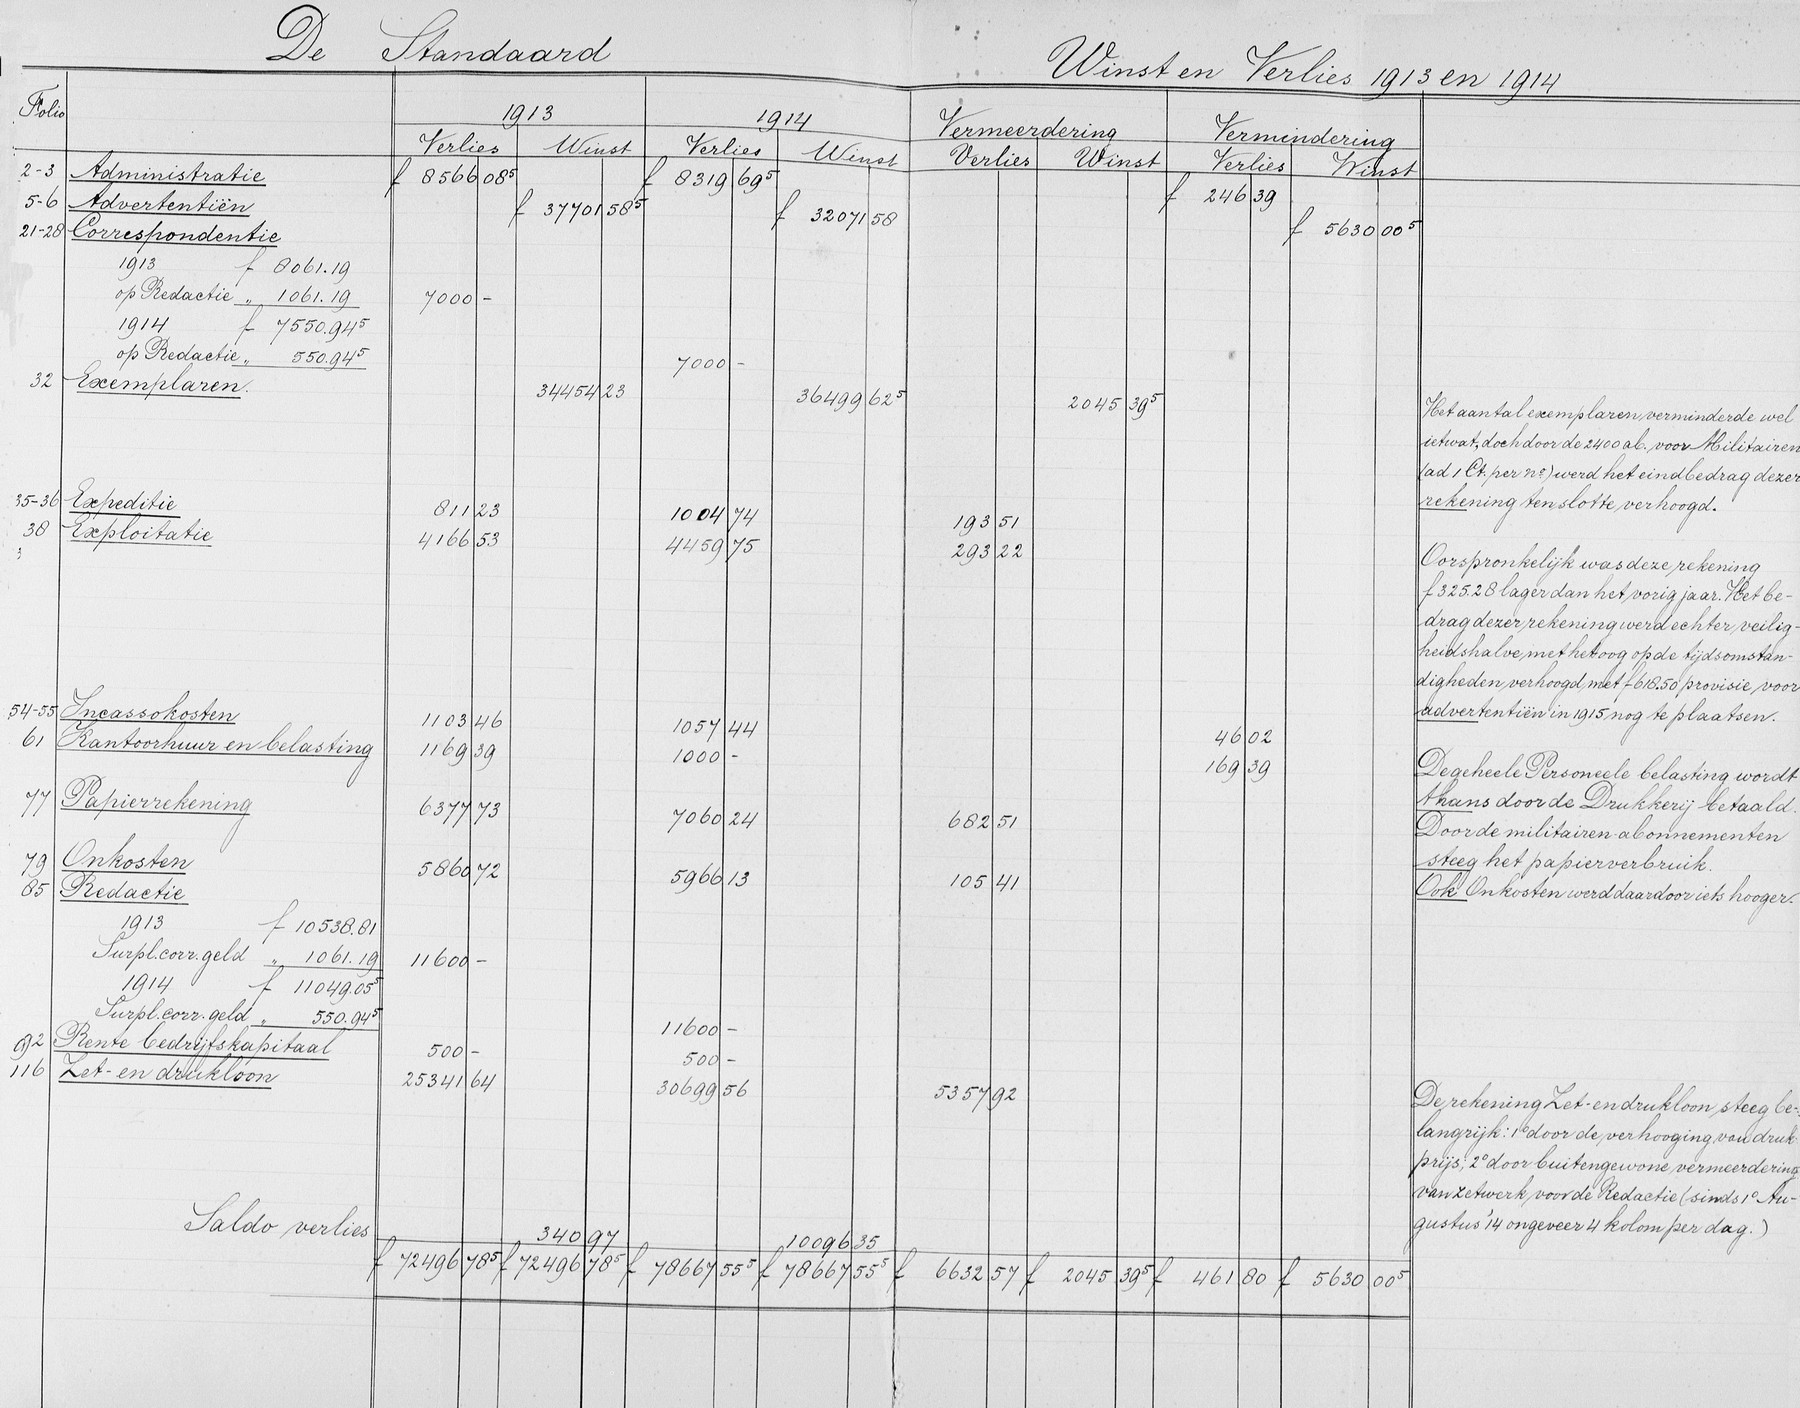 De Standaard Winst en Verlies 1913 en 1914
Folio 1913 1914 Vermeerdering Vermindering
Verlies Winst Verlies Winst Verlies Winst Verlies Winst
2-3 Administratie f 8566 08⁵ f 8319 69⁵ f 246 39
5-6 Advertentiën f 37701 58⁵ f 32071 58 f 5630 00⁵
21-28 Correspondentie
1913 f 8061.19
op Redactie „ 1061.19 7000 -
1914 f 7550.94⁵
op Redactie „ 550.94⁵ 7000 -
32 Exemplaren. 34454 23 36499 62⁵ 2045 39⁵
Het aantal exemplaren verminderde wel
ietwat, doch door de 2400 ab. voor Militairen
(ad 1 Ct. per nº) werd het eindbedrag dezer
rekening tenslotte verhoogd.
35-36 Expeditie 811 23 1004 74 193 51
38 Exploitatie 4166 53 4459 75 293 22
Oorspronkelijk was deze rekening
f 325.28 lager dan het vorig jaar. Het be-
drag dezer rekening werd echter veilig-
heidshalve, met het oog op de tijdsomstan-
digheden verhoogd met f 618.50 provisie voor
advertentiën in 1915 nog te plaatsen.
54-55 Incassokosten 1103 46 1057 44 46 02
61 Kantoorhuur en belasting 1169 39 1000 - 169 39
De geheele Personeele belasting wordt
thans door de Drukkerij betaald.
77 Papierrekening 6377 73 7060 24 682 51
Door de militairen-abonnementen
steeg het papierverbruik.
79 Onkosten 5860 72 5966 13 105 41
Ook Onkosten werd daardoor iets hooger.
85 Redactie
1913 f 10538.81
Surpl. corr. geld „ 1061.19 11600 -
1914 f 11049.05⁵
Surpl. corr. geld „ 550.94⁵ 11600 -
92 Rente bedrijfskapitaal 500 - 500 -
116 Zet- en drukloon 25341 64 30699 56 5357 92
De rekening Zet- en drukloon steeg be-
langrijk: 1º door de verhooging van druk-
prijs; 2º door buitengewone vermeerdering
van zetwerk voor de Redactie (sinds 1º Au-
gustus '14 ongeveer 4 kolom per dag.)
Saldo verlies 340 97 10096 35
f 72496 78⁵ f 72496 78⁵ f 78667 55⁵ f 78667 55⁵ f 6632 57 f 2045 39⁵ f 461 80 f 5630 00⁵